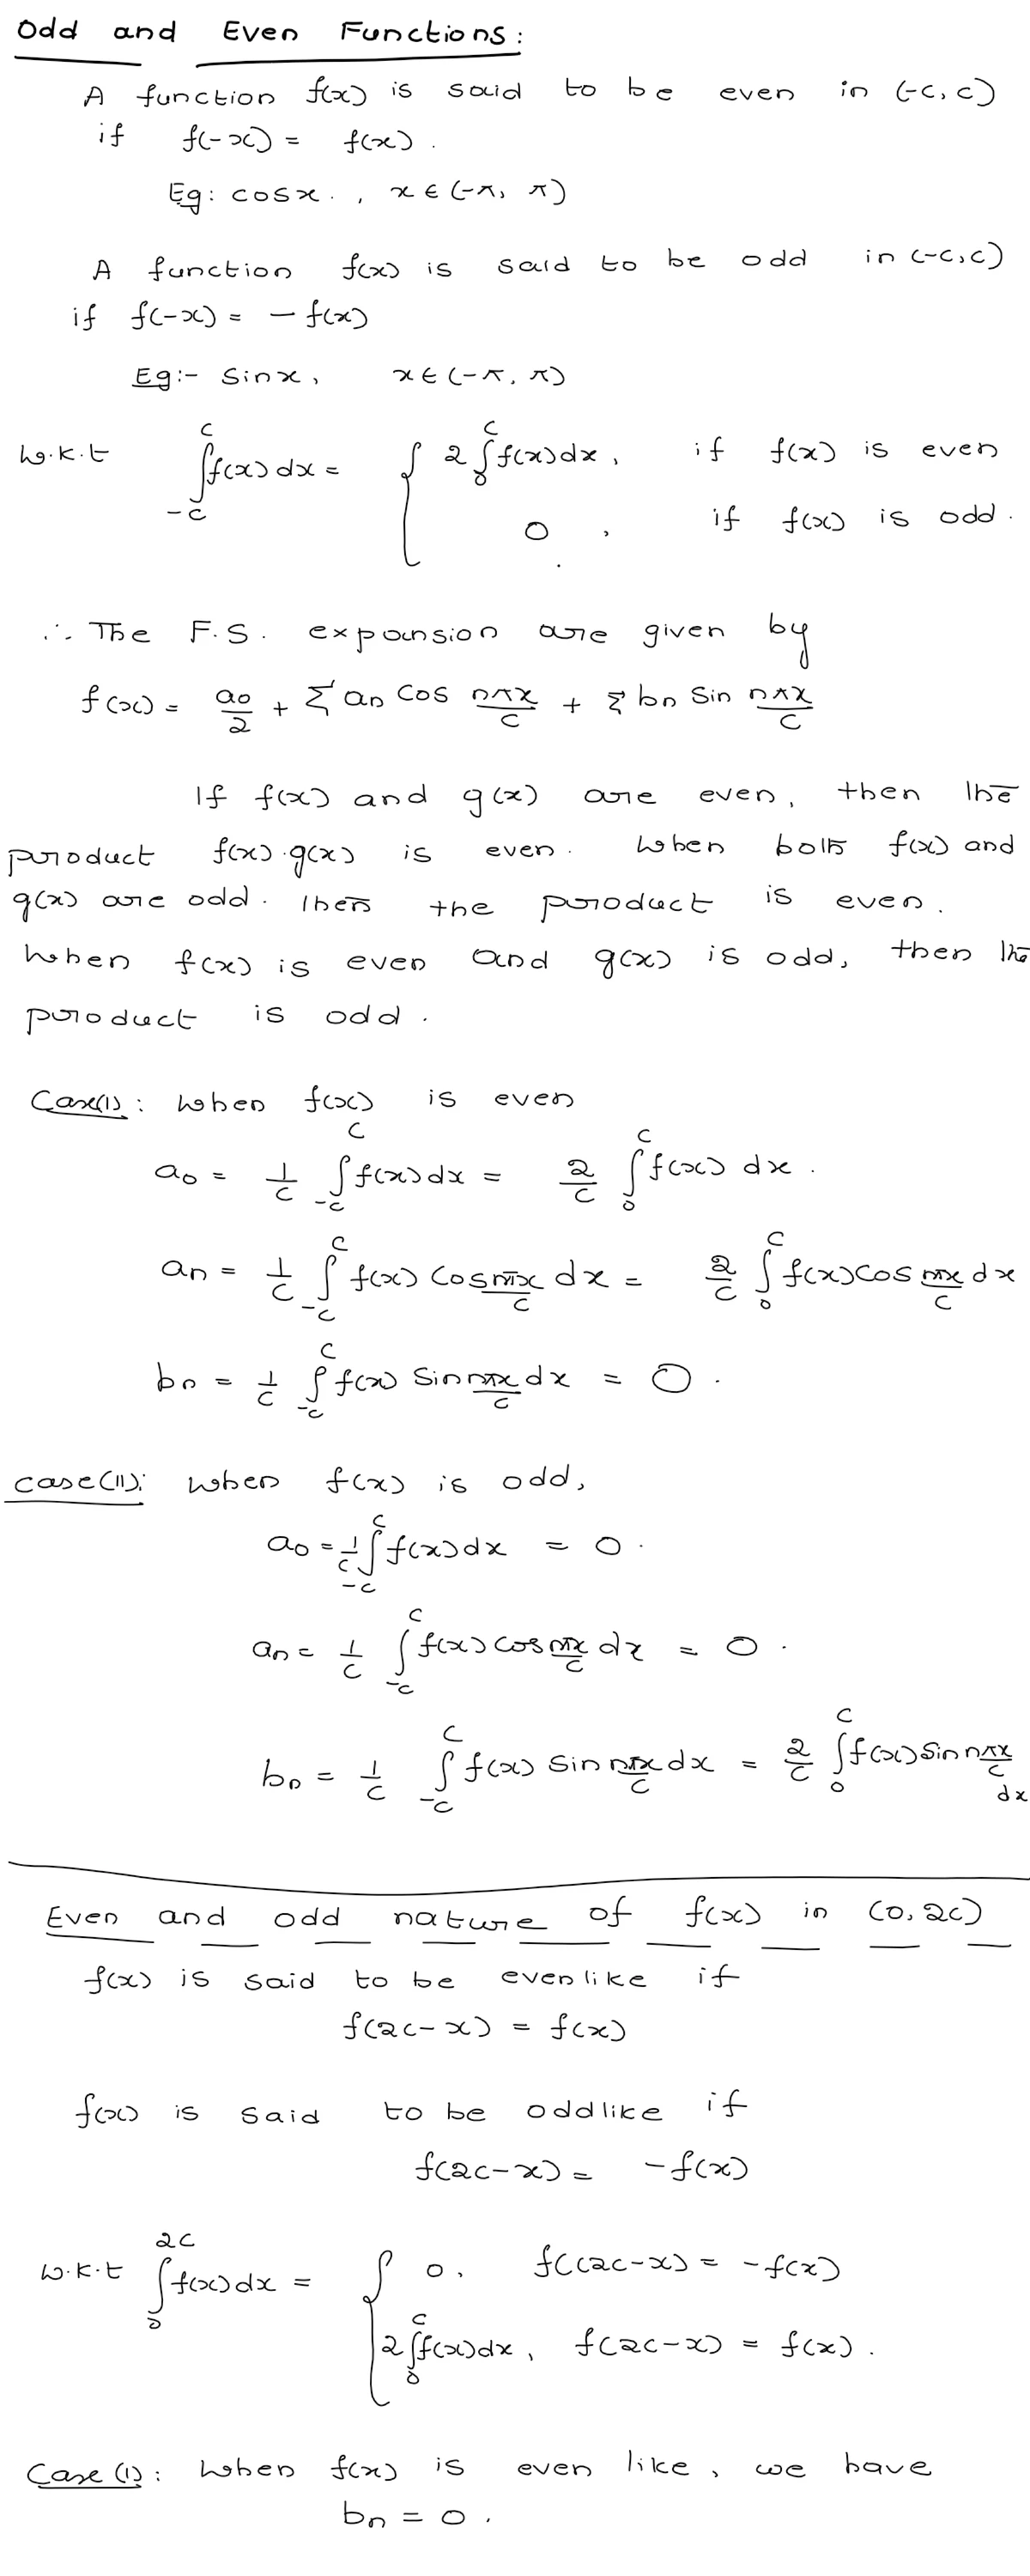 Odd and Even Functions:
A function f(x) is said to be even in (-c, c)
if f(-x) = f(x).
Eg: cosx., x ∈ (-π, π)
A function f(x) is said to be odd in (-c, c)
if f(-x) = - f(x)
Eg:- Sinx, x ∈ (-π, π)
W.K.t ∫_{-c}^{c} f(x) dx = { 2 ∫_0^c f(x) dx, if f(x) is even
0, if f(x) is odd.
∴ The F.S. expansion are given by
f(x) = a0/2 + Σ an Cos nπx/c + Σ bn Sin nπx/c
If f(x) and g(x) are even, then the
product f(x).g(x) is even. When both f(x) and
g(x) are odd. Then the product is even.
When f(x) is even and g(x) is odd, then the
product is odd.
Case(I): When f(x) is even
a0 = 1/c ∫_{-c}^{c} f(x) dx = 2/c ∫_0^c f(x) dx.
an = 1/c ∫_{-c}^{c} f(x) Cos nπx/c dx = 2/c ∫_0^c f(x) cos nπx/c dx
bn = 1/c ∫_{-c}^{c} f(x) Sin nπx/c dx = 0.
case(II): When f(x) is odd,
a0 = 1/c ∫_{-c}^{c} f(x) dx = 0.
an = 1/c ∫_{-c}^{c} f(x) cos nπx/c dx = 0.
bn = 1/c ∫_{-c}^{c} f(x) Sin nπx/c dx = 2/c ∫_0^c f(x) Sin nπx/c
dx
Even and odd nature of f(x) in (0, 2c)
f(x) is said to be evenlike if
f(2c-x) = f(x)
f(x) is said to be oddlike if
f(2c-x) = -f(x)
W.K.t ∫_0^{2c} f(x) dx = { 0, f((2c-x) = -f(x)
2 ∫_0^c f(x) dx, f(2c-x) = f(x).
Case (I): When f(x) is even like, we have
bn = 0.